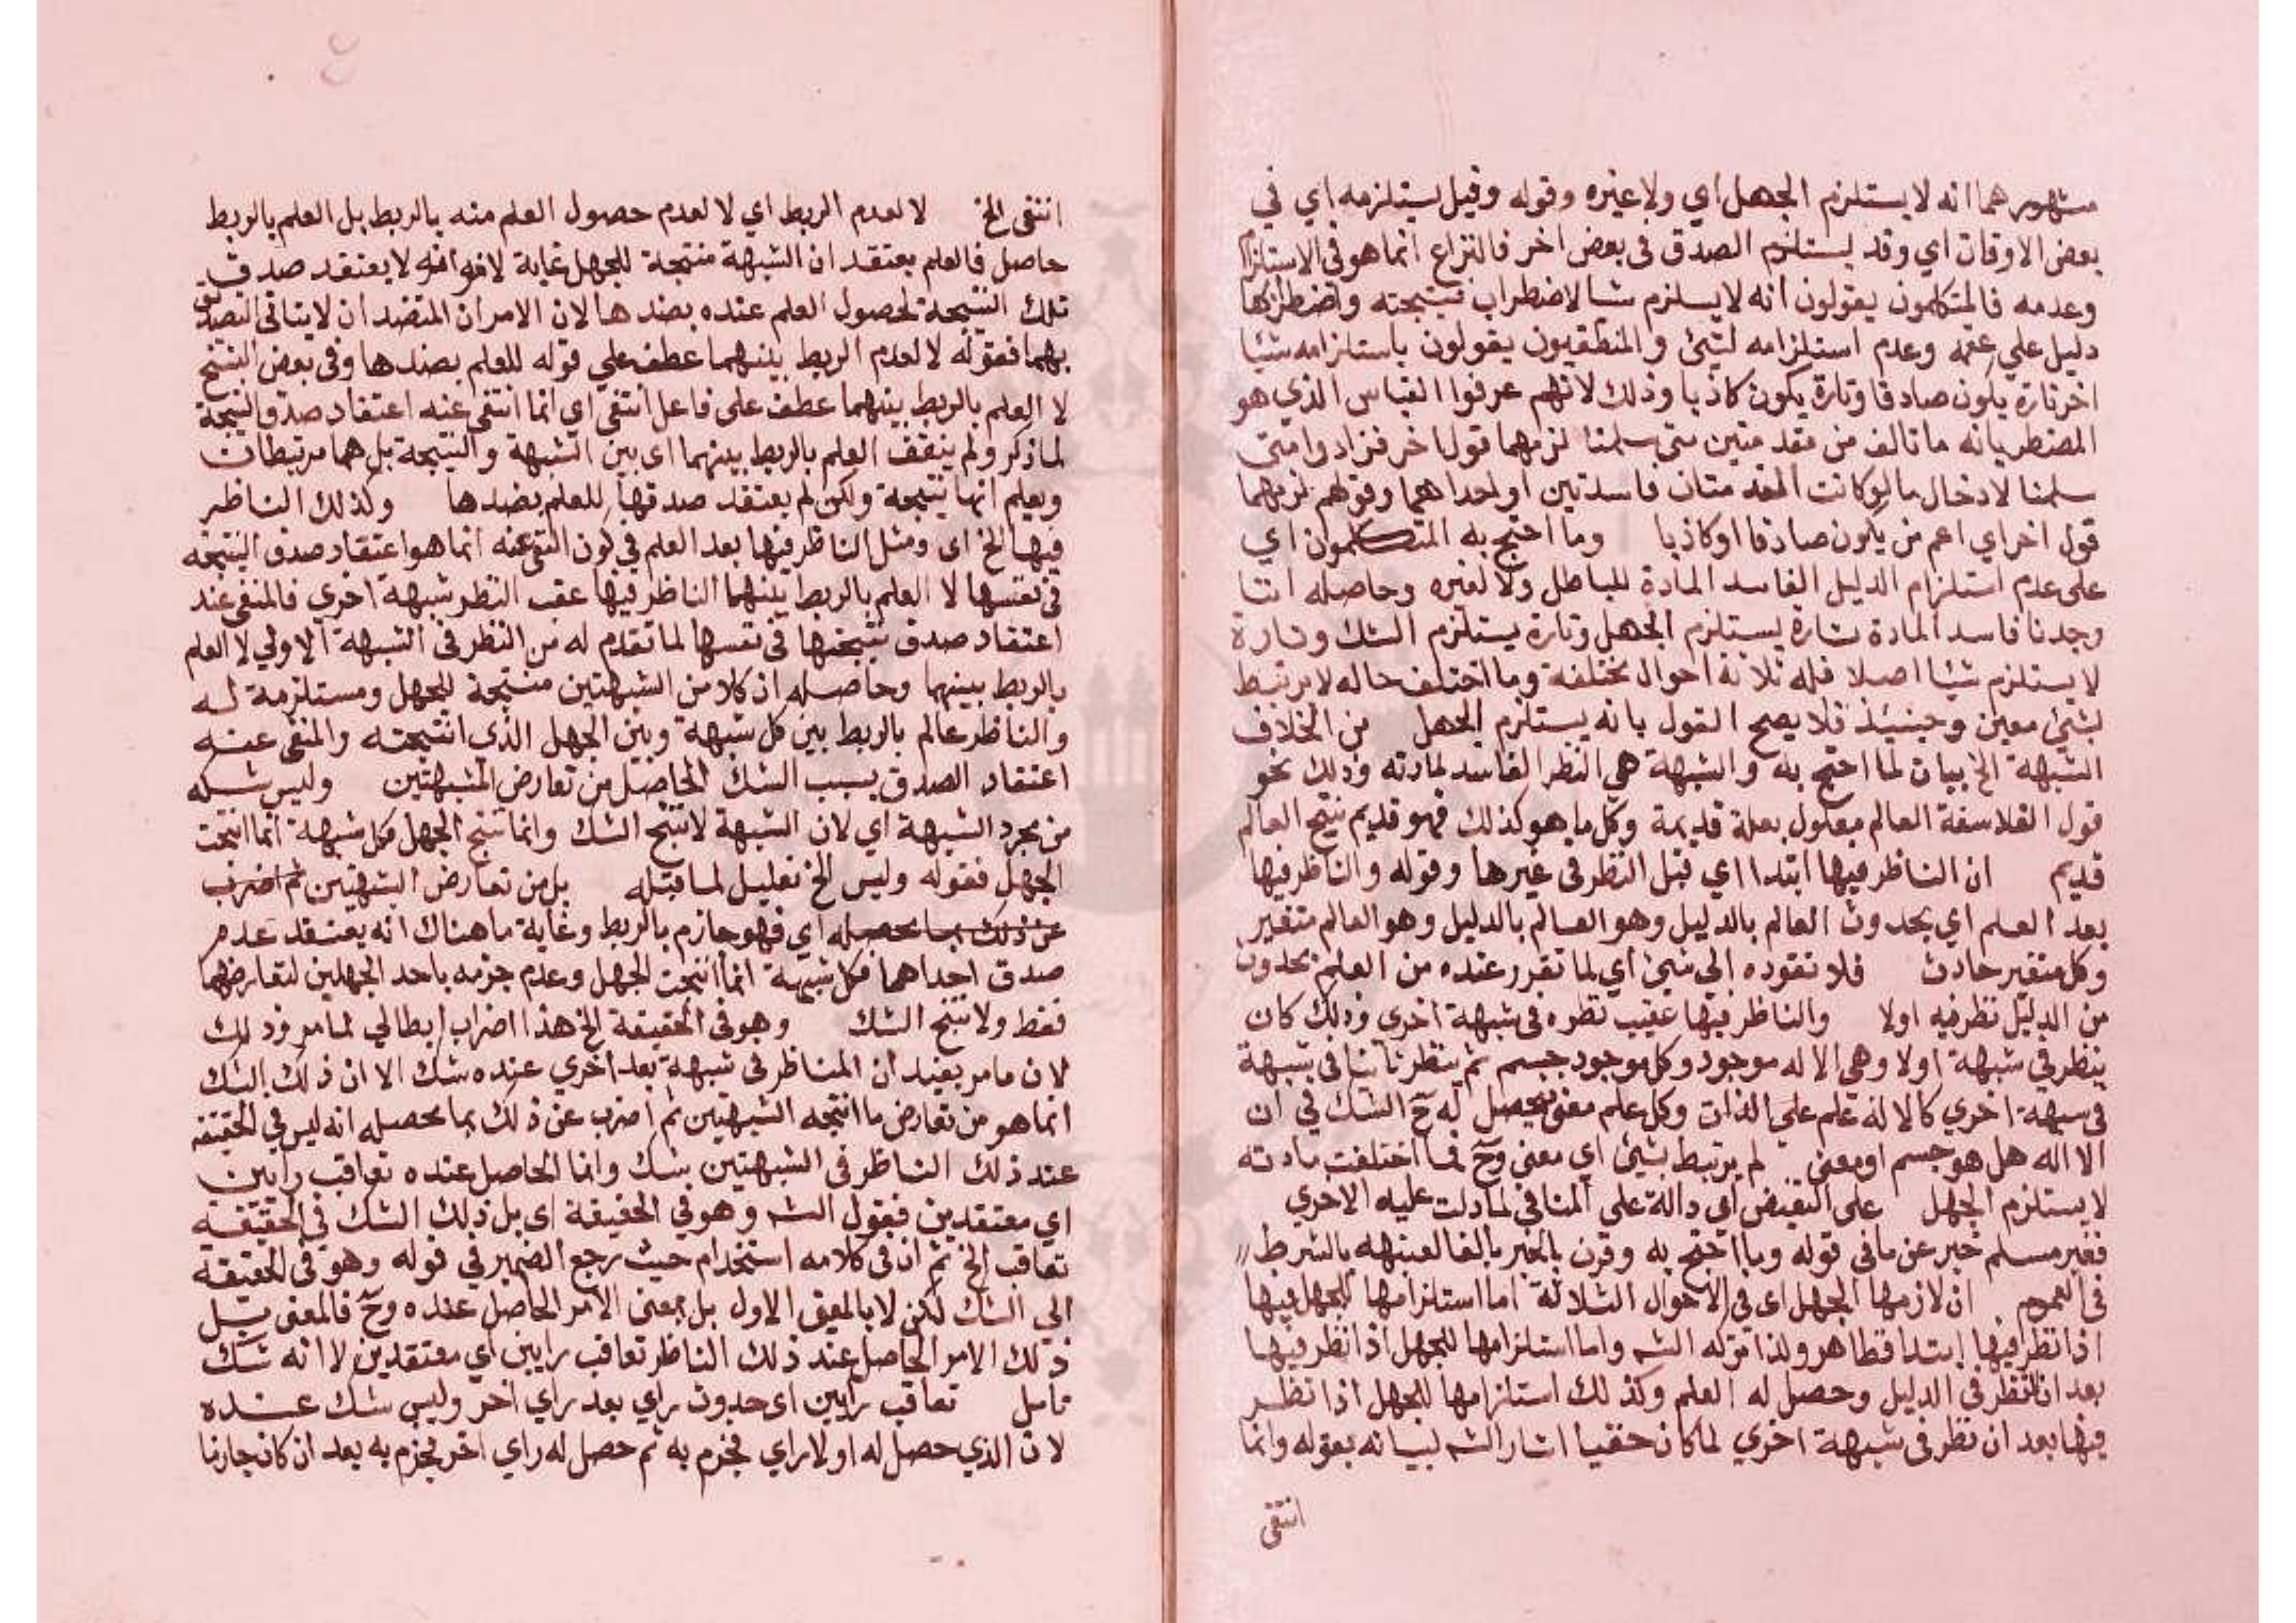 مشهورهما انه لا يستلزم الجهل اي ولا غيره وقوله وقيل يستلزمه اي في
بعض الاوقات اي وقد يستلزم الصدق فى بعض اخر فالنزاع انما هو فى الاستلزام
وعدمه فالمتكلمون يقولون انه لا يسلزم شيا لاضطراب نتيجته واضطرابها
دليل علي عقمه وعدم استلزامه لشيئ والمنطقيون يقولون باستلزامه شيئا
اخر تارة يكون صادقا وتارة يكون كاذبا وذلك لانهم عرفوا القياس الذي هو
المضطر بانه ما تالف من مقدمتين متى سلمتا لزمهما قول اخر فزادوا متى
سلمتا لادخال ما لو كانت المقدمتان فاسدتين او احداهما وقولهم لزمهما
قول اخر اي اعم من يكون صادقا او كاذبا وما احتج به المتكلمون اي
على عدم استلزام الدليل الفاسد المادة للباطل ولا لغيره وحاصله اننا
وجدنا فاسد المادة تارة يستلزم الجهل وتارة يستلزم الشك وتارة
لا يستلزم شيئا اصلا فله ثلاثة احوال مختلفة وما اختلف حاله لا يرتبط
بشيئ معين وحينيئذ فلا يصح القول بانه يستلزم الجهل من الخلاف
الشبهة الخ بيان لما احتج به والشبهة هي النظر الفاسد لمادته وذلك نحو
قول الفلاسفة العالم معلول بعلة قديمة وكل ما هو كذلك فهو قديم ينتج العالم
قديم ان الناظر فيها ابتدا اي قبل النظر فى غيرها وقوله والناظر فيها
بعد العلم اي بحدوث العالم بالدليل وهو العالم بالدليل وهو العالم متغير
وكل متغير حادث فلا تقوده الي شيئ اي لما تقرر عنده من العلم بحدوث
من الدليل نظر فيه اولا والناظر فيها عقيب نظره فى شبهة اخري وذلك كان
ينظر في شبهة اولا وهي الاله موجود وكل موجود جسم ثم ينظر ثانيا فى شبهة
فى شبهة اخري كالاله علم علي الذات وكل علم معنى يحصل له ح الشك في ان
الا اله هل هو جسم او معنى لم يرتبط بشيئ اي معنى وح فما اختلفت مادته
لا يستلزم الجهل على النقيض اي دالة على المنافي لما دلت عليه الاخري
فغير مسلم خبر عن ما فى قوله وما احتج به وقرن بالخبر بالفا لشبهه بالشرط
فى العموم ان لازمها الجهل اى في الاحوال الثلاثة اما استلزامها للجهل فيها
اذا نظر فيها ابتدا فظاهر ولذا تركه الشم واما استلزامها للجهل اذا نظر فيها
بعد ان نظر فى الدليل وحصل له العلم وكذلك استلزامها للجهل اذا نظر
فيها بعد ان نظر فى شبهة اخري لما كان خفيا اشار الشم لبيانه بقوله وانما
انتفى
انتفى الخ لا لعدم الربط اي لا لعدم حصول العلم منه بالربط بل العلم بالربط
حاصل فالعلم يعتقد ان الشبهة منتجة للجهل غاية لافه انه لا يعتقد صدق
تلك النتيجة لحصول العلم عنده بضدها لان الامران المتضدان لا يتاتى التصدق
بهما فقوله لا لعدم الربط بينهما عطف علي قوله للعلم بضدها وفى بعض النسخ
لا العلم بالربط بينهما عطف على فاعل انتفى اي انما انتفى عنه اعتقاد صدق النتيجة
لما ذكر ولم ينتف العلم بالربط بينهما اى بين الشبهة والنتيجة بل هما مرتبطان
ويعلم انها نتيجة ولكن لم يعتقد صدقها للعلم بضدها ولذلك الناظر
فيها الخ اى ومثل الناظر فيها بعد العلم في كون المنتفى عنه انما هو اعتقاد صدق النتيجه
فى نفسها لا العلم بالربط بينهما الناظر فيها عقب النظر شبهة اخري فالمنفى عند
اعتقاد صدق نتيجتها فى نفسها لما تقدم له من النظر فى الشبهة الاولي لا العلم
بالربط بينهما وحاصله ان كلا من الشبهتين منتجة للجهل ومستلزمة له
والناظر عالم بالربط بين كل شبهة وبين الجهل الذي انتجته والمنفى عنه
اعتقاد الصدق بسبب الشك الحاصل من تعارض المشبهتين وليس شكه
من مجرد الشبهة اي لان الشبهة لا تنتج الشك وانما تنتج الجهل فكل شبهة انما انتجت
الجهل فقوله وليس الخ تعليل لما قبله بل من تعارض الشبهتين ثم اضرب
عن ذلك بما محصله اي فهو جازم بالربط وغاية ما هناك انه يعتقد عدم
صدق احداهما فكل شبهة انما انتجت الجهل وعدم جزمه باحد الجهلين لتعارضهما
فقط ولا تنتج الشك وهو فى الحقيقة الخ هذا اضراب ابطالي لما مر وذلك
لان ما مر يفيد ان المناظر فى شبهة بعد اخري عنده شك الا ان ذلك الشك
انما هو من تعارض ما انتجه الشبهتين ثم اضرب عن ذلك بما محصله انه ليس في الحقيقة
عند ذلك الناظر فى الشبهتين شك وانما الحاصل عنده تعاقب رايين
اي معتقدين فقول الشم وهو في الحقيقة اى بل ذلك الشك في الحقيقة
تعاقب الخ ثم ان فى كلامه استخدام حيث رجع الضمير في قوله وهو فى الحقيقة
الي الشك لكن لا بالمعنى الاول بل بمعنى الامر الحاصل عنده وح فالمعنى بل
ذلك الامر الحاصل عند ذلك الناظر تعاقب رايين اي معتقدين لا انه شك
تامل تعاقب رايين اى حدوث راي بعد راي اخر وليس شك عنده
لان الذي حصل له اولا راي فجزم به ثم حصل له راي اخر فجزم به بعد ان كان جازما